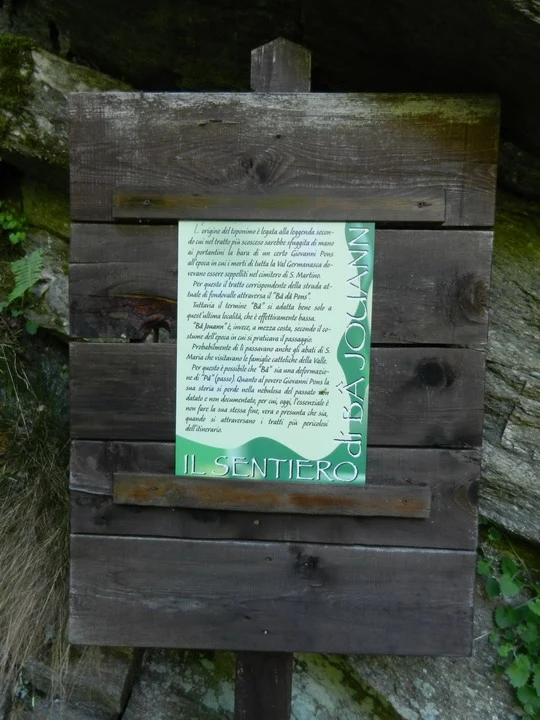 L'origine del toponimo è legata alla leggenda secon-
do cui nel tratto più scosceso sarebbe sfuggita di mano
ai portantini la bara di un certo Giovanni Pons
all'epoca in cui i morti di tutta la Val Germanasca do-
vevano essere seppelliti nel cimitero di S. Martino.
Per questo il tratto corrispondente della strada at-
tuale di fondovalle attraversa il "Bâ dâ Pons".
Tuttavia il termine "Bâ" si adatta bene solo a
quest'ultima località, che è effettivamente bassa.
"Bâ Jouann" è, invece, a mezza costa, secondo il co-
stume dell'epoca in cui si praticava il passaggio.
Probabilmente di lì passavano anche gli abati di S.
Maria che visitavano le famiglie cattoliche della Valle.
Per questo è possibile che "Bâ" sia una deformazio-
ne di "Pâ" (passo). Quanto al povero Giovanni Pons la
sua storia si perde nella nebulosa del passato non
datato e non documentato, per cui, oggi, l'essenziale è
non fare la sua stessa fine, vera o presunta che sia,
quando si attraversano i tratti più pericolosi
dell'itinerario.
IL SENTIERO
di BÂ JOUANN